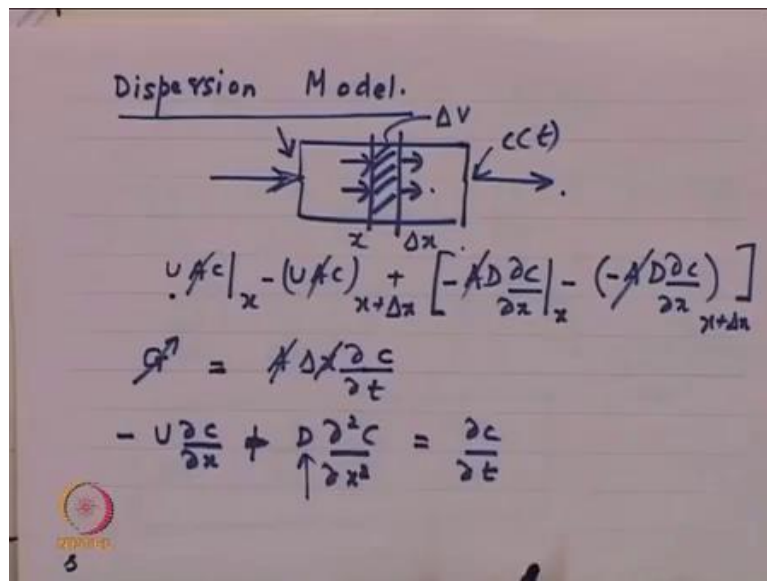 Dispersion Model.
ΔV
c(t)
x Δx
UAC|x - (UAC)x+Δx + [-AD ∂C/∂x|x - (-AD ∂C/∂x)x+Δx]
= AΔx ∂C/∂t
- U ∂C/∂x + D ∂²C/∂x² = ∂C/∂t
NPTEL